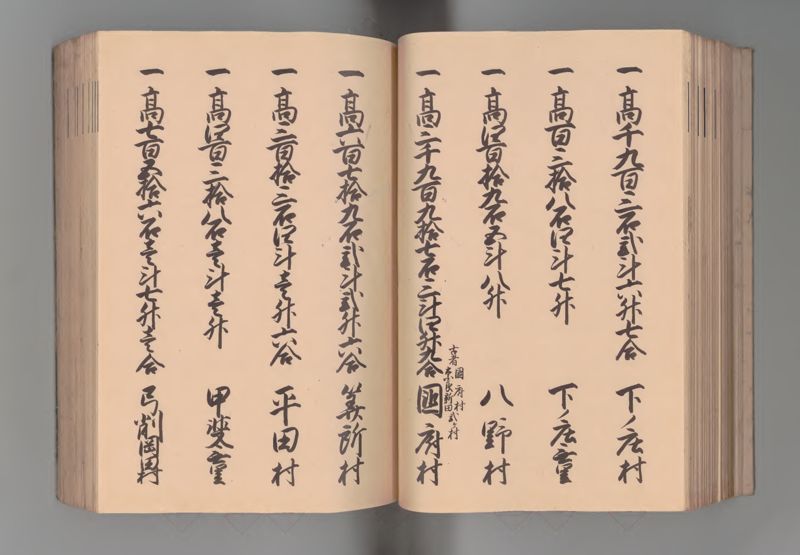 一 高千九百三石弐斗六升七合 下ノ庄村
一 高百三拾八石四斗七升 下ノ庄
一 高四百拾九石五斗八升 八野村
一 高二千九百九拾七石二斗四升九合 国府村
古者 国府村
新田弐ヶ村
一 高六百七拾九石弐斗弐升六合 算所村
一 高三百拾三石四斗壱升六合 平田村
一 高四百三拾八石壱斗壱升 甲斐
一 高七百五拾六石壱斗七升壱合 弓削岡田村